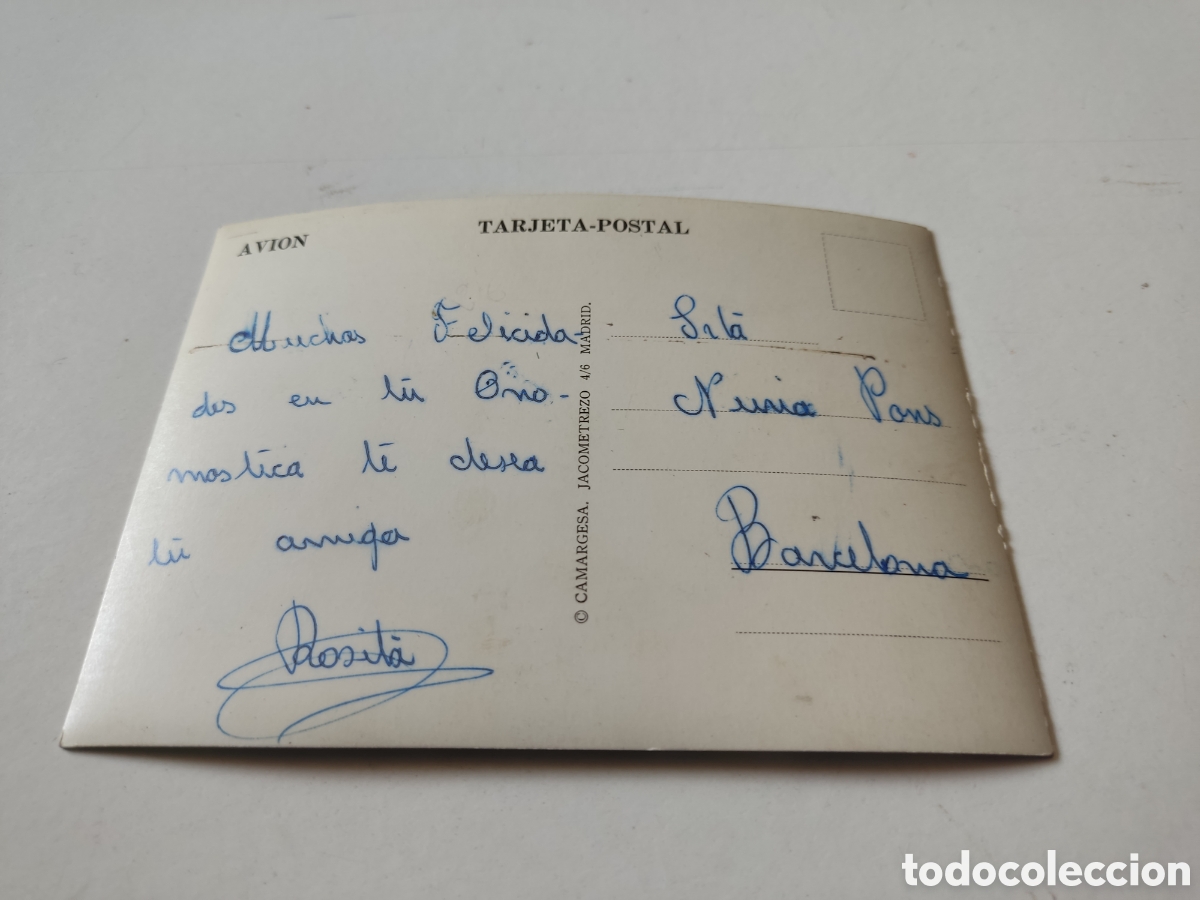 TARJETA-POSTAL
AVION
Muchas Felicida-
des en tú Ono-
mastica té desea
tú amiga
Rositá
© CAMARGESA. JACOMETREZO 4/6 MADRID.
Sritá
Nuria Pons
Barcelona
todocoleccion